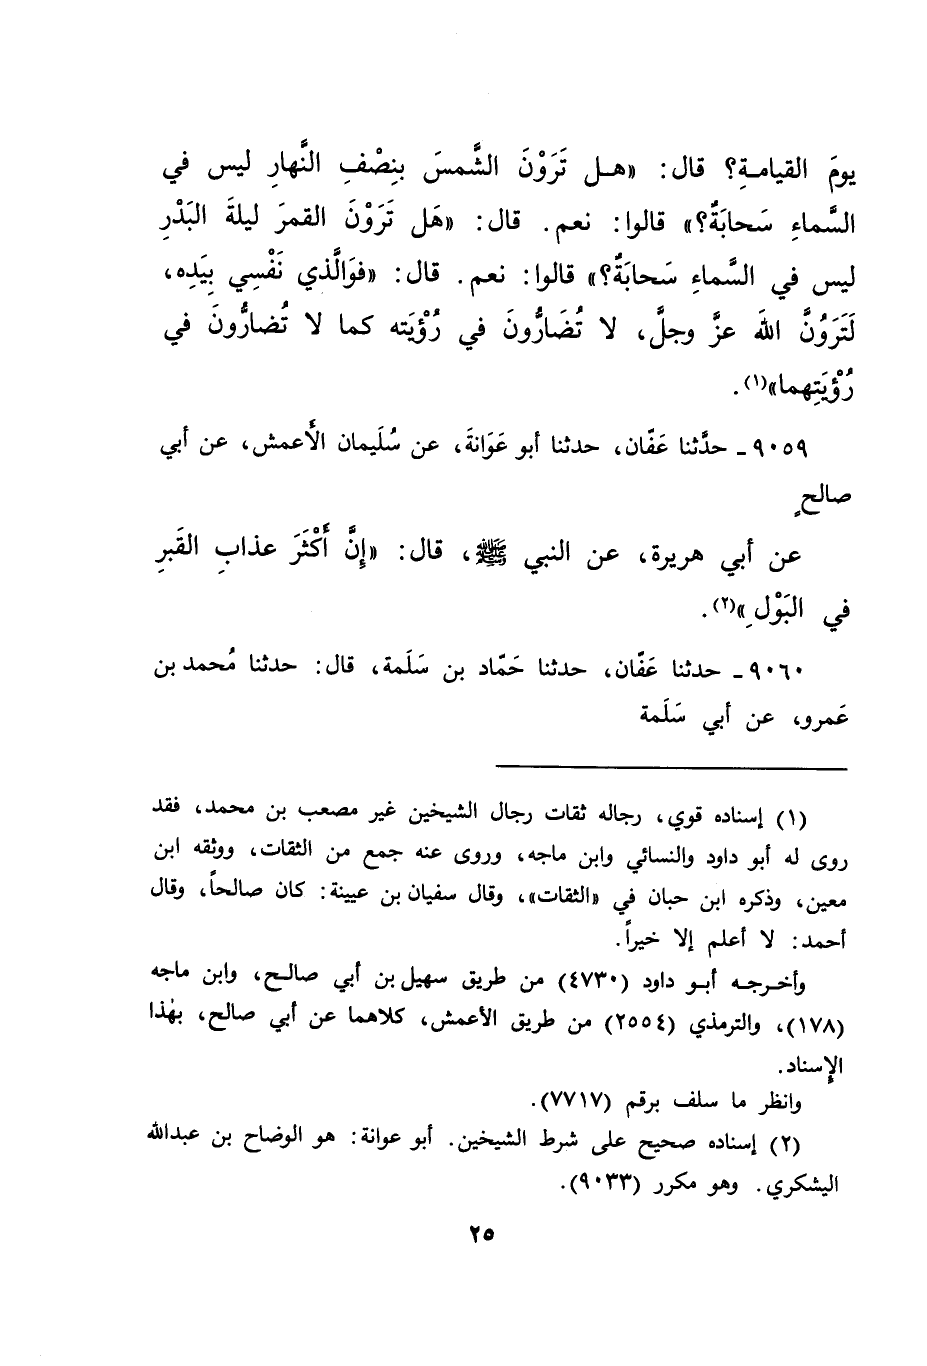 يومَ القيامـةِ؟ قال: «هـل تَرَوْنَ الشَّمسَ بِنِصْفِ النَّهارِ ليس في
السَّماءِ سَحابَةٌ؟» قالوا: نعم. قال: «هَل تَرَوْنَ القمرَ ليلةَ البَدْرِ
ليس في السَّماءِ سَحابَةٌ؟» قالوا: نعم. قال: «فوَالَّذي نَفْسِي بِيَدِه،
لَتَرَوُنَّ اللهَ عزَّ وجلَّ، لا تُضَارُّونَ في رُؤْيَته كما لا تُضارُّونَ في
رُؤْيَتِهما»(١).
٩٠٥٩ـ حدَّثنا عَفّان، حدثنا أبو عَوَانةَ، عن سُلَيمان الأَعمش، عن أبي
صالحٍ
عن أبي هريرة، عن النبي ﷺ، قال: «إنَّ أَكْثَرَ عذابِ القَبرِ
في البَوْلِ»(٢).
٩٠٦٠ـ حدثنا عَفّان، حدثنا حَمّاد بن سَلَمة، قال: حدثنا مُحمد بن
عَمرو، عن أبي سَلَمة
(١) إسناده قوي، رجاله ثقات رجال الشيخين غير مصعب بن محمد، فقد
روى له أبو داود والنسائي وابن ماجه، وروى عنه جمع من الثقات، ووثقه ابن
معين، وذكره ابن حبان في «الثقات»، وقال سفيان بن عيينة: كان صالحاً، وقال
أحمد: لا أعلم إلا خيراً.
وأخـرجـه أبـو داود (٤٧٣٠) من طريق سهيل بن أبي صالـح، وابن ماجه
(١٧٨)، والترمذي (٢٥٥٤) من طريق الأعمش، كلاهما عن أبي صالح، بهٰذا
الإسناد.
وانظر ما سلف برقم (٧٧١٧).
(٢) إسناده صحيح على شرط الشيخين. أبو عوانة: هو الوضاح بن عبدالله
اليشكري. وهو مكرر (٩٠٣٣).
٢٥